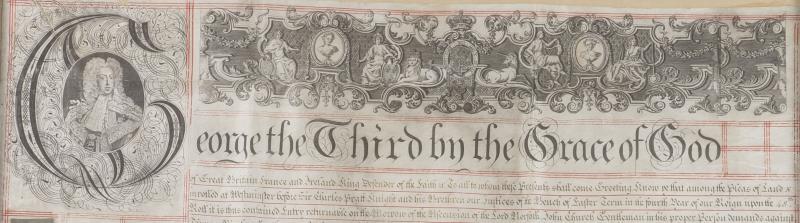 George the Third by the Grace of God
of Great Britain France and Ireland King Defender of the Faith &c To all to whom these Presents shall come Greeting Know ye that among the Pleas of Land
inrolled at Westminster before Sir Charles Pratt Knight and his Brethren our Justices of the Bench of Easter Term in the fourth Year of our Reign upon the
Roll it is thus contained Entry returnable on the Morrow of the Ascension of the Lord Norfolk John Church Gentleman in his proper Person demands against